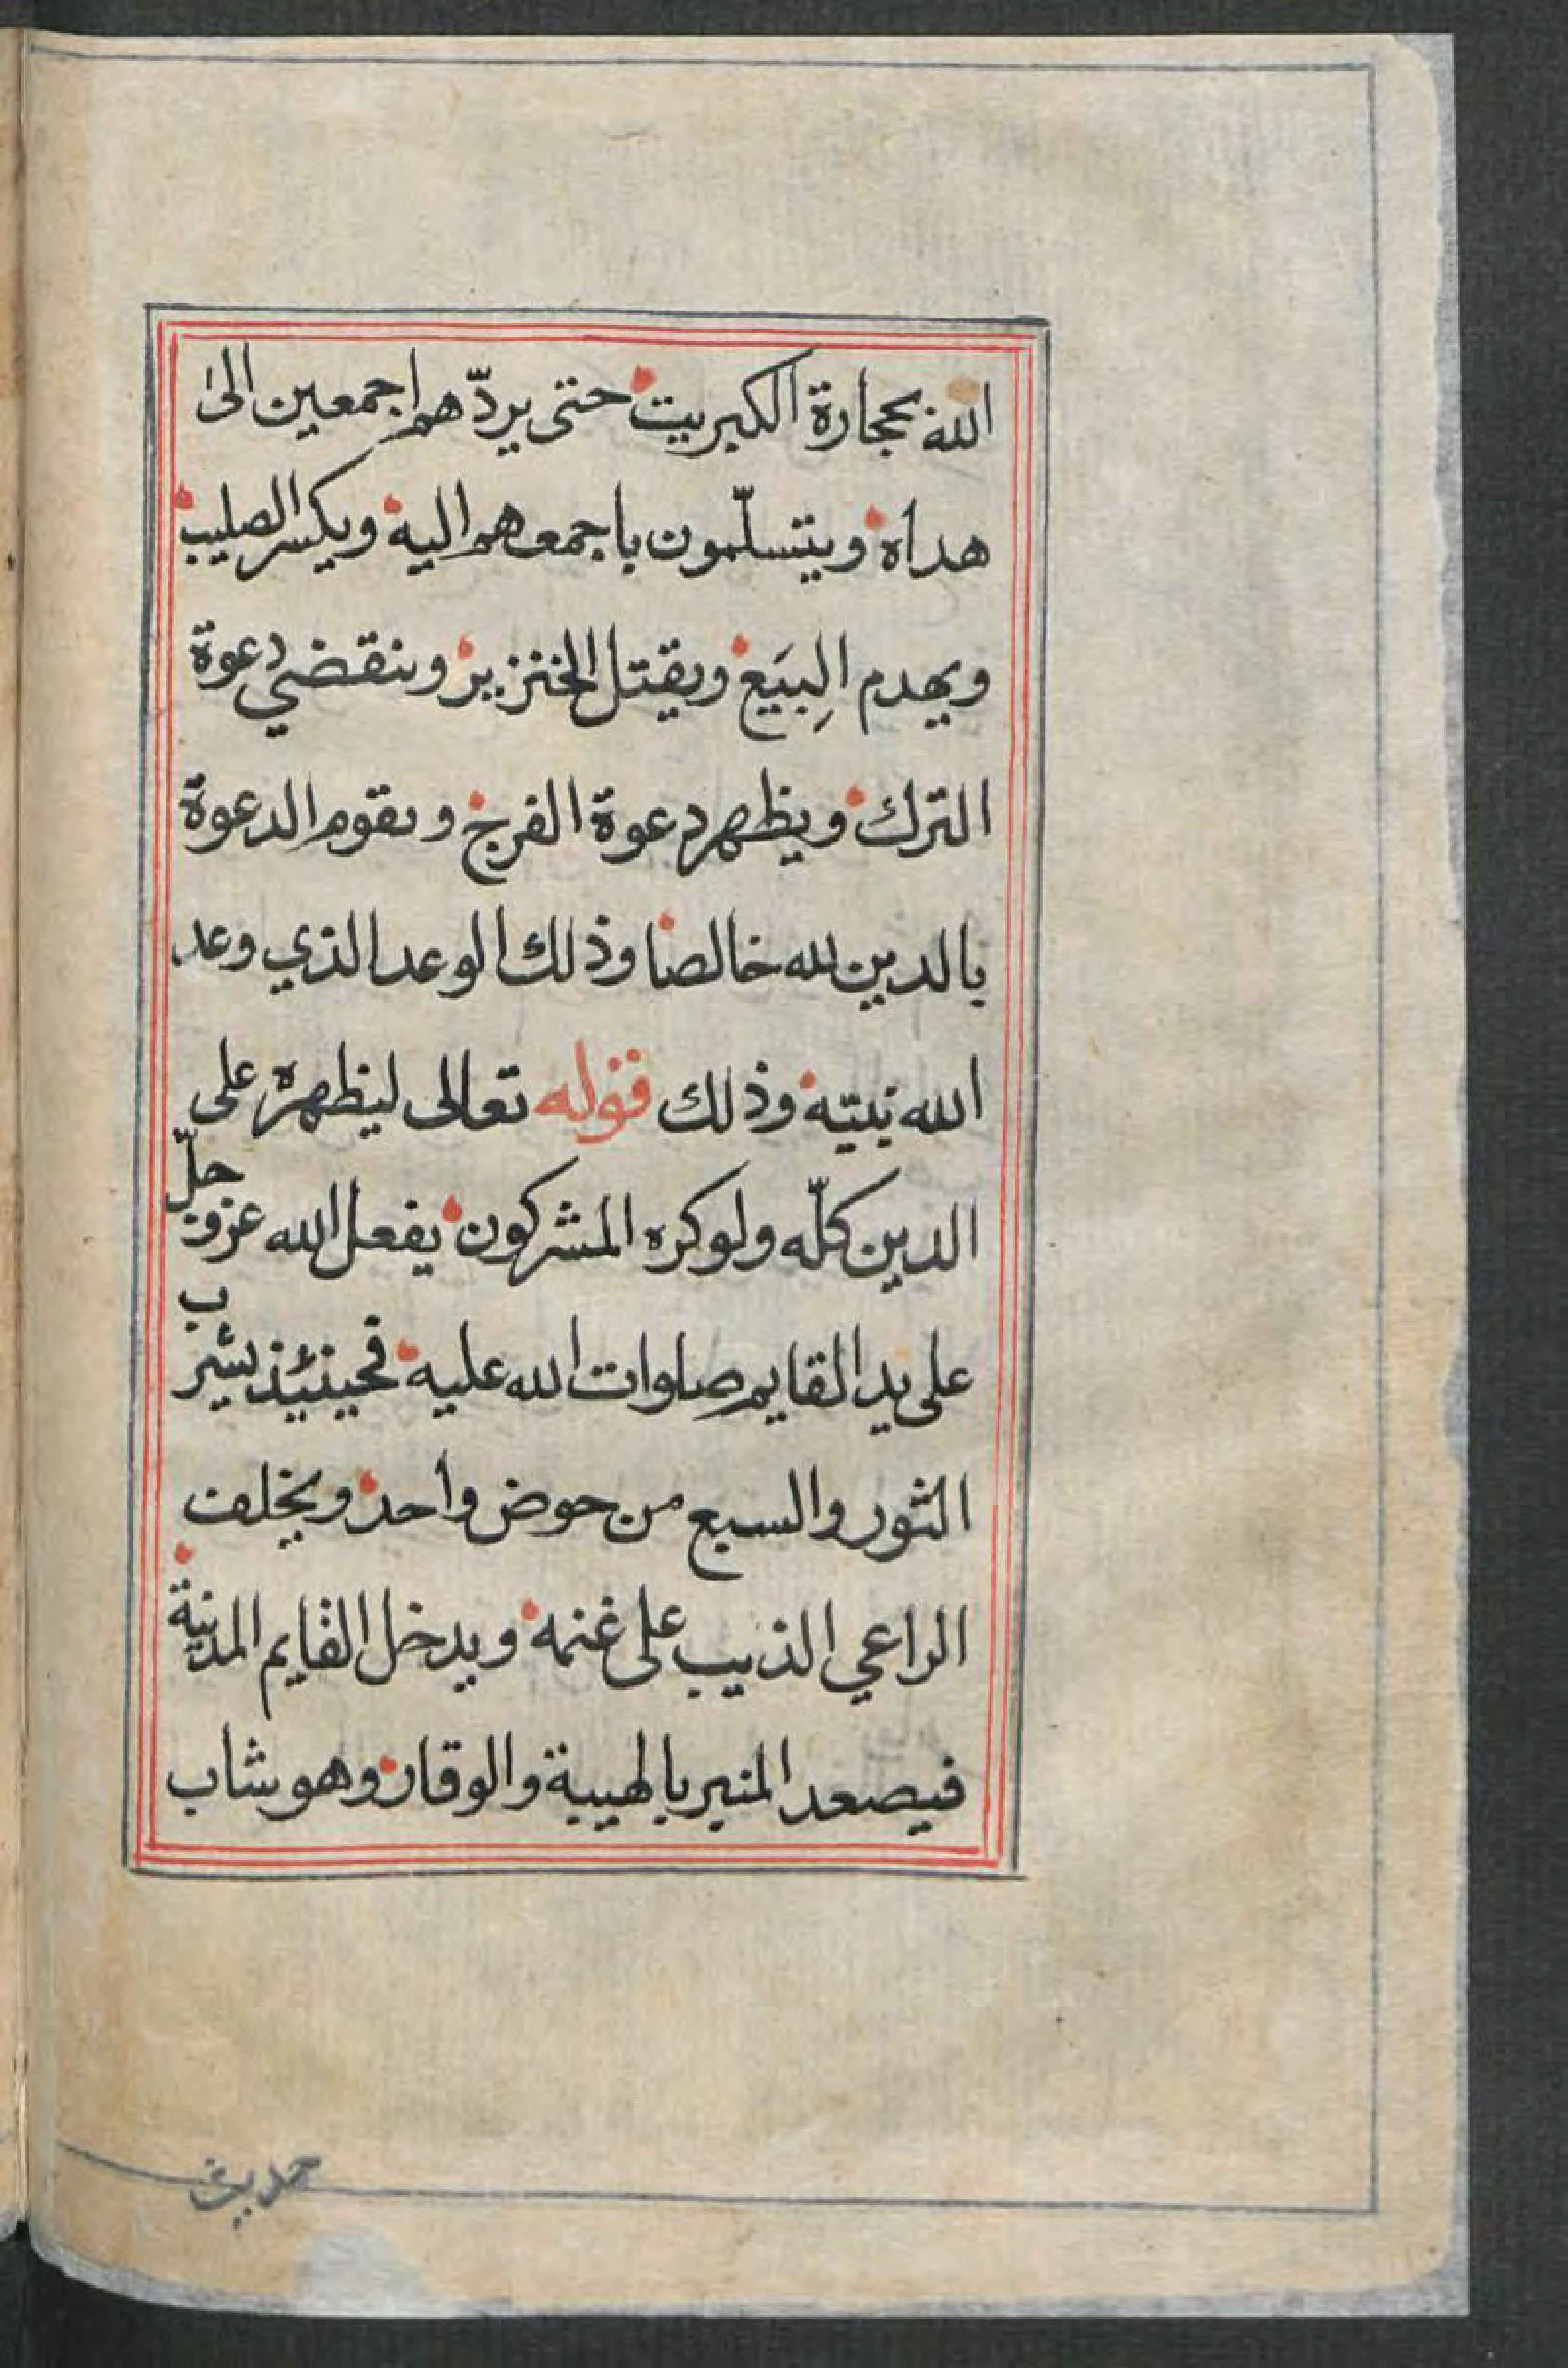 الله بحجارة الكبريت حتى يردّ هم اجمعين الى
هداه ويتسلّمون باجمعهم اليه ويكسر الصليب
ويهدم البِيَع ويقتل الخنزير وينقضي دعوة
الترك ويظهر دعوة الفرج ويقوم الدعوة
بالدين لله خالصا وذلك الوعد الذي وعد
الله نبيّه وذلك قوله تعالى ليظهره على
الدين كلّه ولو كره المشركون يفعل الله عز وجلّ
على يد القايم صلوات الله عليه فحينئيذ يشرب
الثور والسبع من حوض واحد ويخلف
الراعي الذيب على غنمه ويدخل القايم المدينة
فيصعد المنبر بالهيبة والوقار وهو شاب